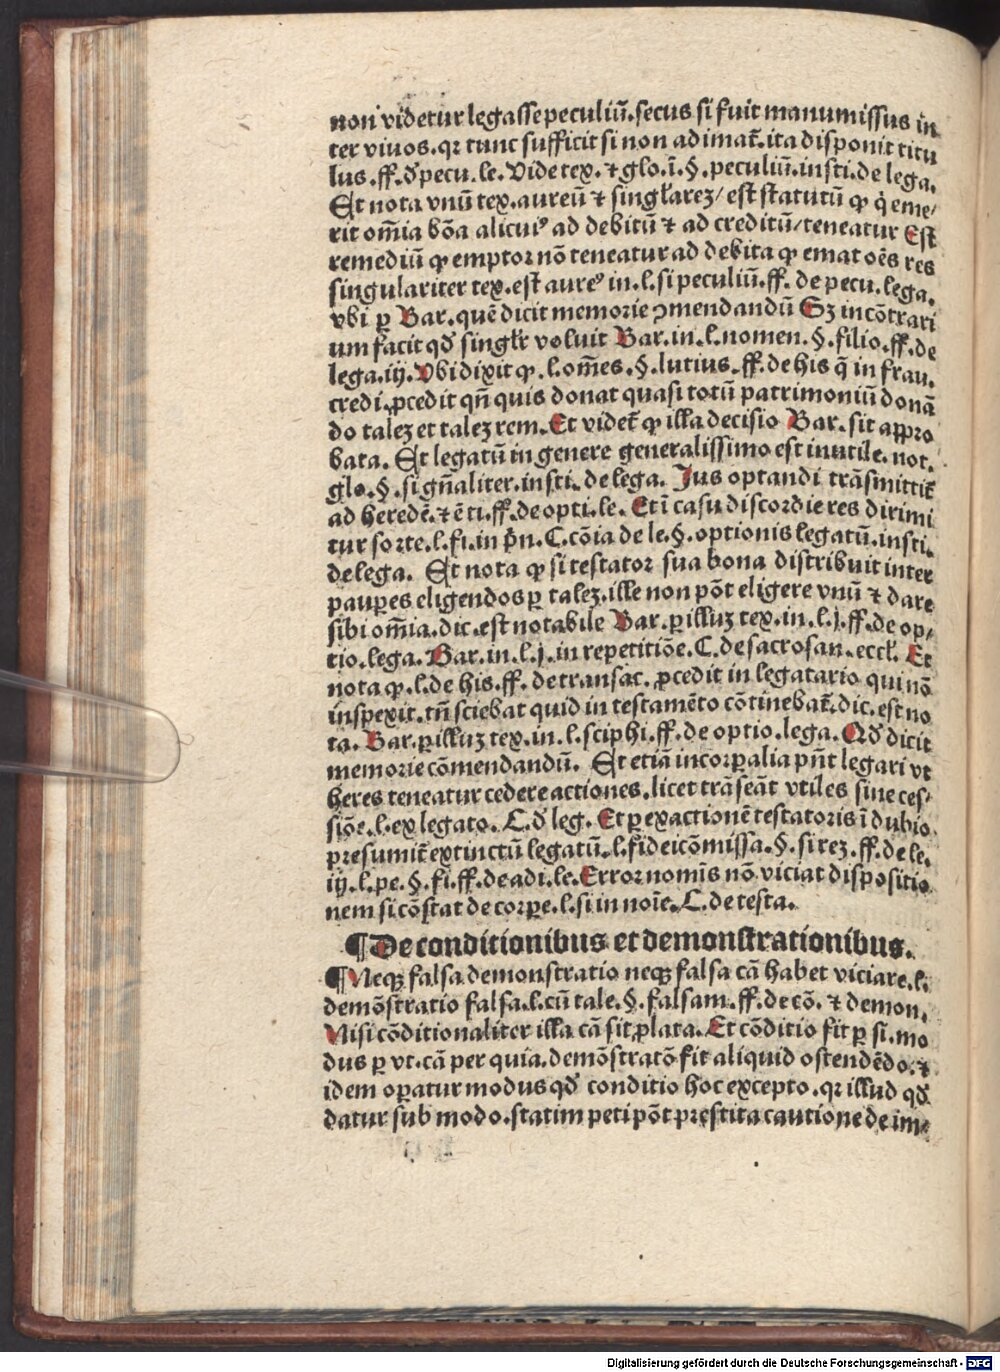 non videtur legasse peculiū. secus si fuit manumissus in
ter viuos. qꝛ tunc sufficit si non adimat̄. ita disponit titu
lus .ff. ꝺ̄ pecu. le. Vide tex. ⁊ glo. ī. §. peculiū. insti. de lega.
Et nota vnū tex. aureū ⁊ singl̄areꝫ/ est statutū ꝙ q̇ eme/
rit om̄ia bōa alicuiꝰ ad debitū ⁊ ad creditū/ teneatur Est
remediū ꝙ emptoꝛ nō teneatur ad debita ꝙ emat oēs res
singulariter tex. est aureꝰ in .l. si peculiū. ff. de pecu. lega.
vbi ꝑ Bar. quē dicit memorie ꝯmendandū Sꝫ in cōtrari
um facit qd̄ singl̄r voluit Bar. in .l. nomen. §. filio. ff. de
lega. iij. Vbi dixit ꝙ .l. om̄es. §. lutius. ff. de his q̄ in frau.
credi. ꝓcedit qn̄ quis donat quasi totū patrimoniū donā
do taleꝫ et taleꝫ rem. Et videt̄ ꝙ illa decisio Bar. sit appro
bata. Et legatū in genere generalissimo est inutile. not.
glo. §. si gn̄aliter. insti. de lega. Jus optandi trāsmittit̄
ad heredē. ⁊ ē ti. ff. de opti. le. Et ī casu discordie res dirimi
tur sorte. l. fi. in pn̄. C. cōia de le. §. optionis legatū. insti.
de lega. Et nota ꝙ si testatoꝛ sua bona distribuit inter
pauꝑes eligendos ꝑ taleꝫ. ille non pōt eligere vnū ⁊ dare
sibi om̄ia. dic. est notabile Bar. ꝑ illuꝫ tex. in .l. j. ff. de op/
tio. lega. Bar. in .l. j. in repetitiōe. C. de sacrosan. eccl̄. Et
nota ꝙ .l. de his. ff. de transac. ꝓcedit in legatario qui nō
inspexit. tn̄ sciebat quid in testamēto cōtinebat̄. dic. est no
ta. Bar. ꝑ illuꝫ tex. in .l. sciphi. ff. de optio. lega. Qd̄ dicit
memorie cōmendandū. Et etiā incorꝑalia pn̄t legari vt
heres teneatur cedere actiones. licet trāseāt vtiles sine ces/
siōe. l. ex legato. C. ꝺ̄ leg. Et ꝑ exactionē testatoris ī dubio
presumit̄ extinctū legatū. l. fideicōmissa. §. si reꝫ. ff. de le.
iij. l. pe. §. fi. ff. de adi. le. Erroꝛ nomīs nō viciat dispositio
nem si cōstat de corꝑe. l. si in noīe. C. de testa.
¶ De conditionibus et demonstrationibus.
¶ Neqꝫ falsa demonstratio neqꝫ falsa cā habet viciare. l.
demōstratio falsa. l. cū tale. §. falsam. ff. de cō. ⁊ demon.
Nisi cōditionaliter illa cā sit ꝓlata. Et cōditio fit ꝑ si. mo
dus ꝑ vt. cā per quia. demōstratō fit aliquid ostendēdo. ⁊
idem oꝑatur modus qd̄ conditio hoc excepto. qꝛ illud qd̄
datur sub modo. statim peti pōt prestita cautione de im/
Digitalisierung gefördert durch die Deutsche Forschungsgemeinschaft - DFG